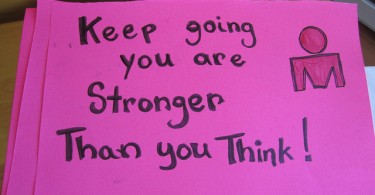 Keep going
you are
Stronger
Than you Think!